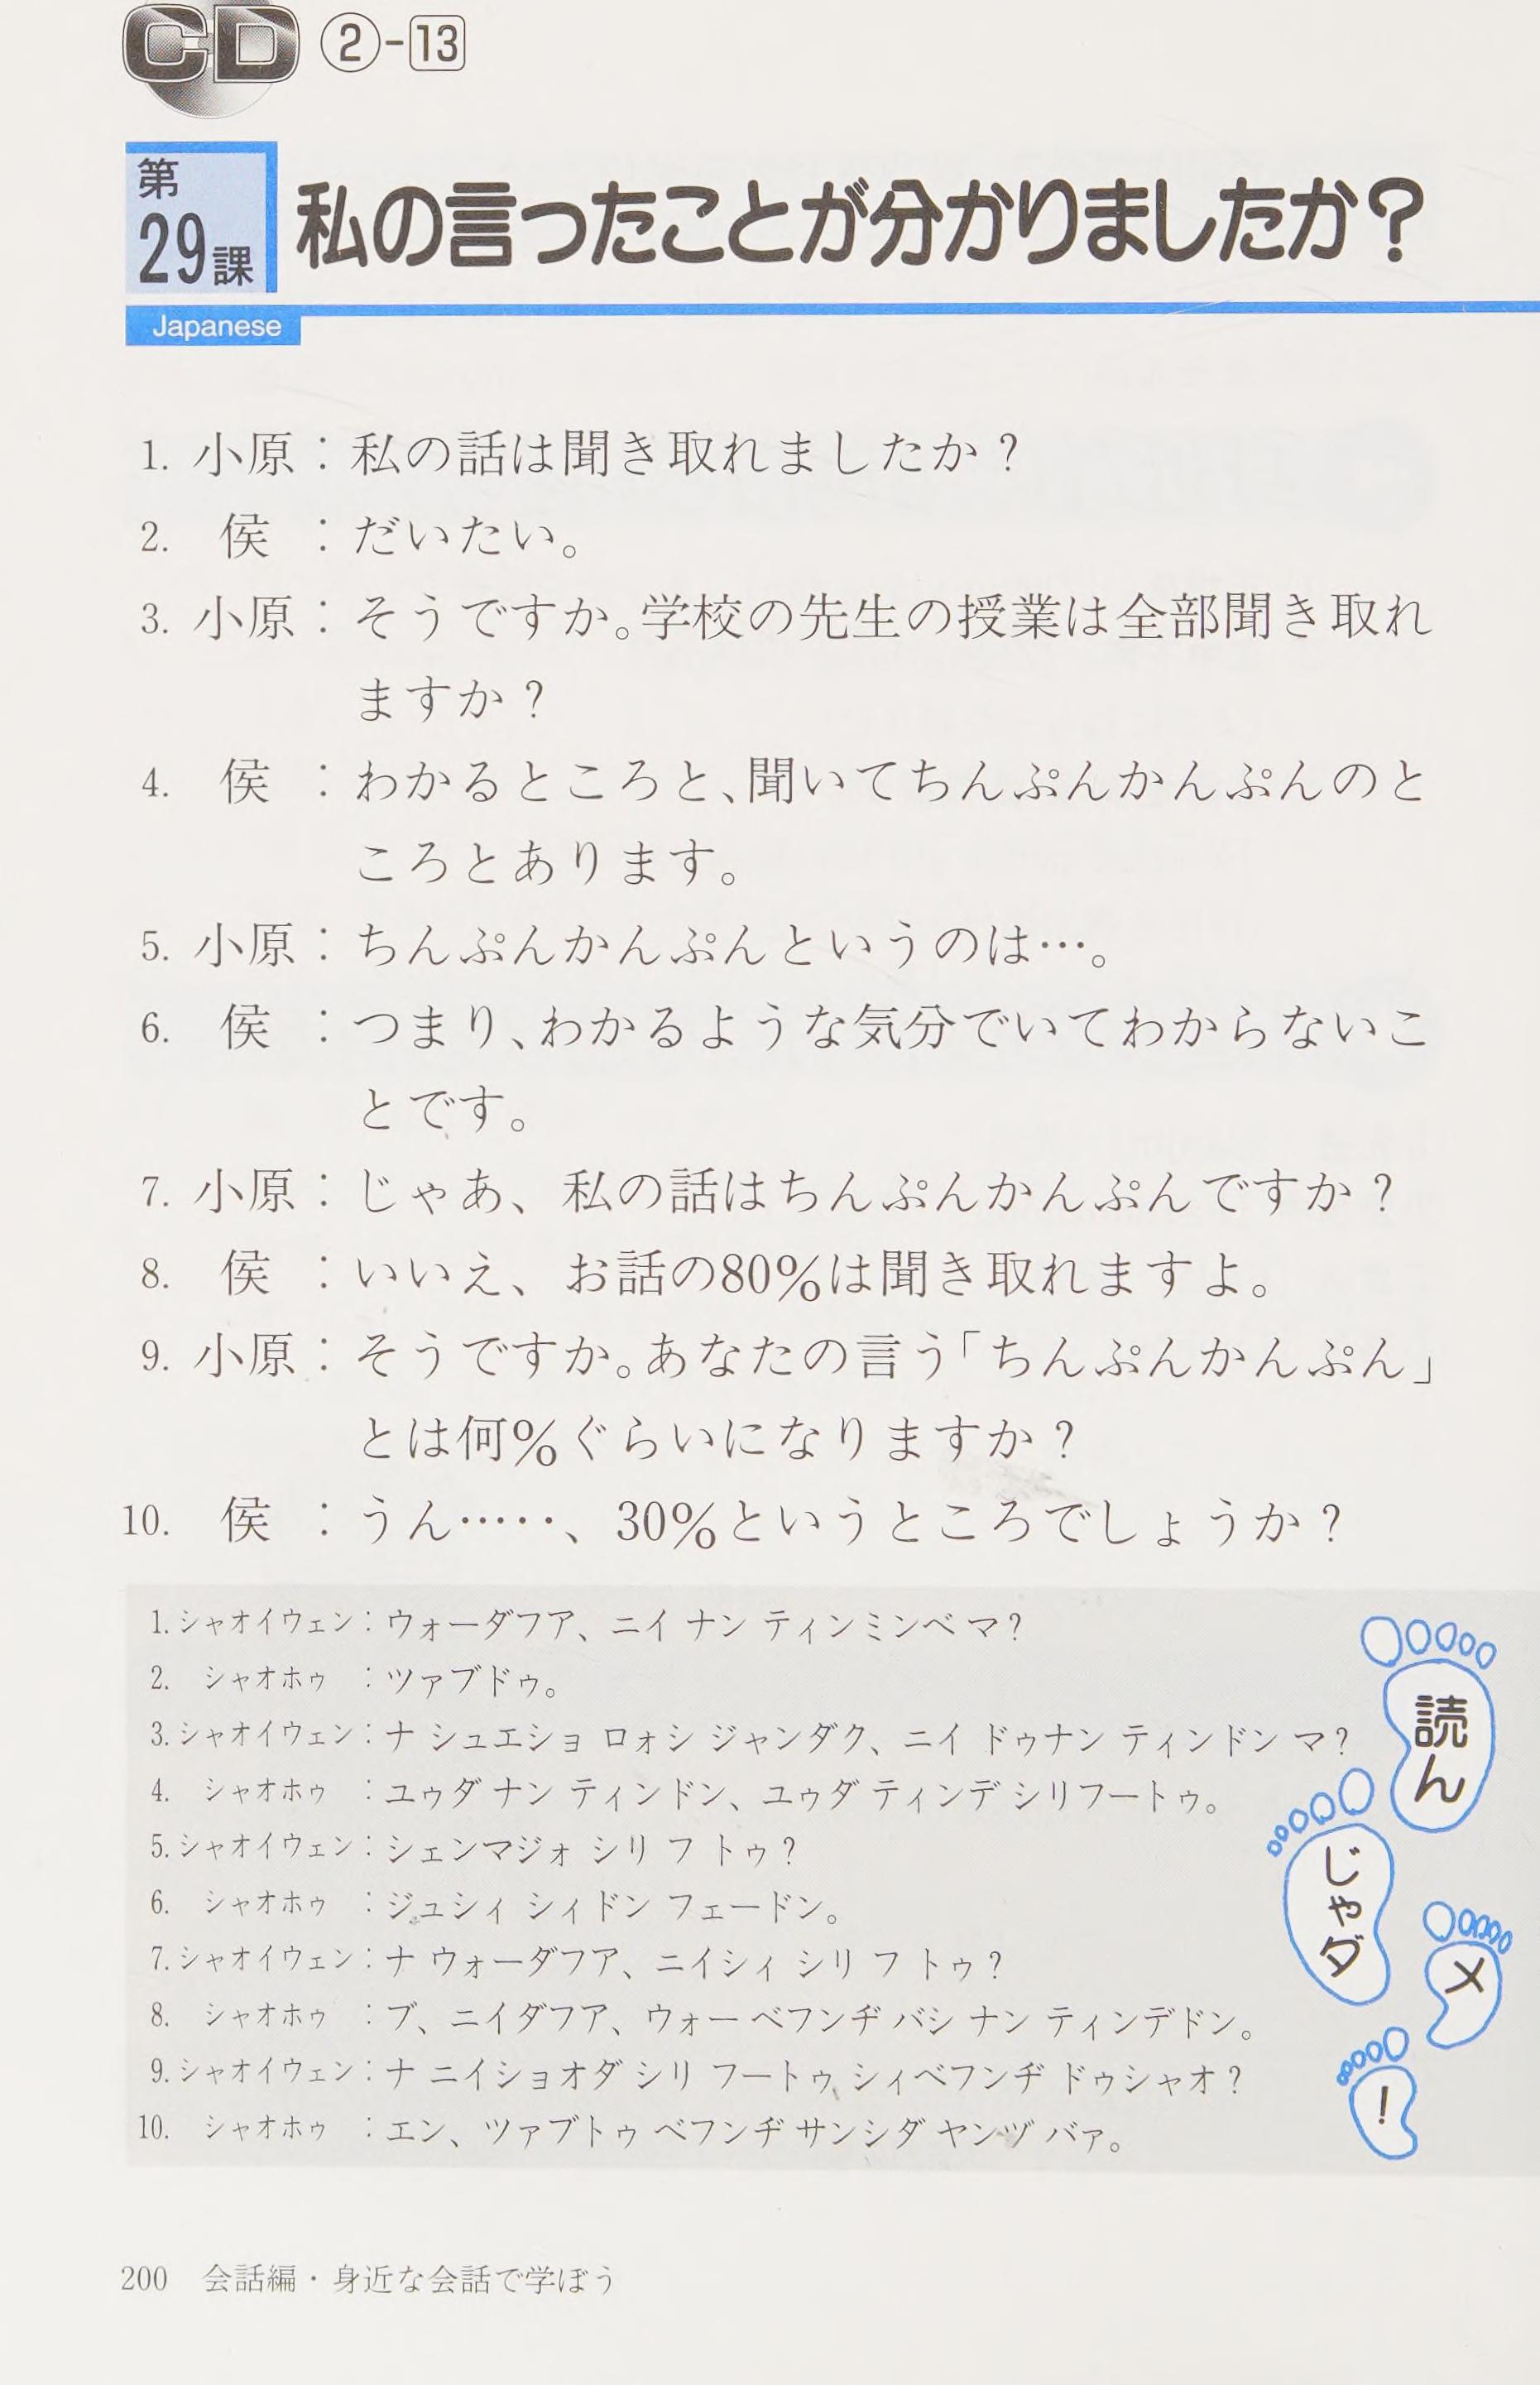 CD ②-13
第29課 私の言ったことが分かりましたか？
Japanese
1. 小原：私の話は聞き取れましたか？
2. 侯：だいたい。
3. 小原：そうですか。学校の先生の授業は全部聞き取れ
ますか？
4. 侯：わかるところと、聞いてちんぷんかんぷんのと
ころとあります。
5. 小原：ちんぷんかんぷんというのは…。
6. 侯：つまり、わかるような気分でいてわからないこ
とです。
7. 小原：じゃあ、私の話はちんぷんかんぷんですか？
8. 侯：いいえ、お話の80％は聞き取れますよ。
9. 小原：そうですか。あなたの言う「ちんぷんかんぷん」
とは何％ぐらいになりますか？
10. 侯：うん……、30％というところでしょうか？
1. シャオイウェン：ウォーダフア、ニイ ナン ティンミンベ マ？
2. シャオホゥ：ツァブドゥ。
3. シャオイウェン：ナ シュエショ ロォシ ジャンダク、ニイ ドゥナン ティンドン マ？
4. シャオホゥ：ユゥダ ナン ティンドン、ユゥダ ティンデ シリフートゥ。
5. シャオイウェン：シェンマジォ シリ フ トゥ？
6. シャオホゥ：ジュシィ シィドン フェードン。
7. シャオイウェン：ナ ウォーダフア、ニイシィ シリ フ トゥ？
8. シャオホゥ：ブ、ニイダフア、ウォー ベフンヂ バシ ナン ティンデドン。
9. シャオイウェン：ナ ニイショオダ シリ フートゥ シィベフンヂ ドゥシャオ？
10. シャオホゥ：エン、ツァブトゥ ベフンヂ サンシダ ヤンヅ バァ。
読ん
じゃダ
メ
！
200 会話編・身近な会話で学ぼう